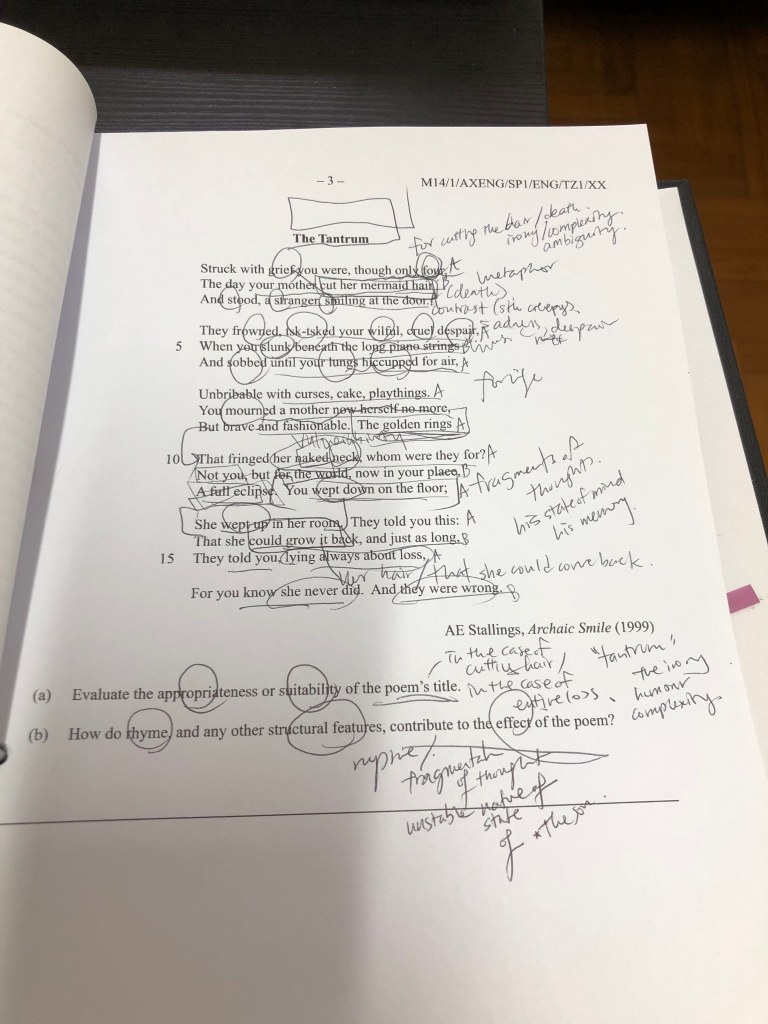 – 3 –
M14/1/AXENG/SP1/ENG/TZ1/XX
for cutting the hair / death.
irony / complexity.
ambiguity.
The Tantrum
Struck with grief you were, though only four, A
The day your mother cut her mermaid hair B
metaphor
(death)
And stood, a stranger, smiling at the door. A
contrast (sth creepy)
They frowned, tsk-tsked your wilful, cruel despair, A
sadness
despair
5 When you slunk beneath the long piano strings B
And sobbed until your lungs hiccupped for air, A
Unbribable with curses, cake, playthings. A
You mourned a mother now herself no more,
But brave and fashionable. The golden rings A
10 That fringed her naked neck, whom were they for? A
Not you, but for the world, now in your place, B
A full eclipse. You wept down on the floor; A
fragments of
thoughts.
his state of mind
his memory.
She wept up in her room. They told you this: A
That she could grow it back, and just as long, B
15 They told you, lying always about loss, A
her hair / that she could come back.
For you know she never did. And they were wrong. B
AE Stallings, Archaic Smile (1999)
in the case of
cutting hair /
in the case of
entire loss.
"tantrum"
the irony
humour
complexity.
(a) Evaluate the appropriateness or suitability of the poem's title.
(b) How do rhyme, and any other structural features, contribute to the effect of the poem?
of thought
unstable nature of
state
of * the son.